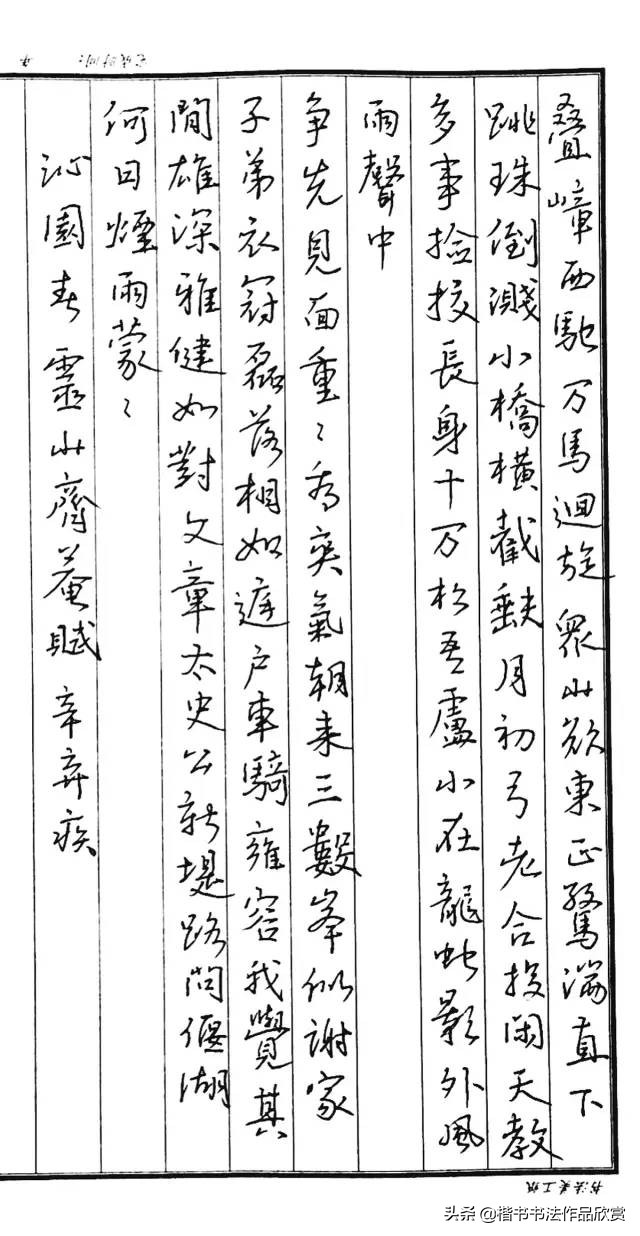 完成时间: 年
疊嶂西馳万馬迴旋衆山欲東正驚湍直下
跳珠倒濺小橋橫截缺月初弓老合投閑天教
多事撿挍長身十万松吾廬小在龍蛇影外風
雨聲中
争先見面重〻看爽氣朝来三數峯似謝家
子弟衣冠磊落相如庭户車騎雍容我覺其
間雄深雅健如對文章太史公新堤路問偃湖
何日煙雨蒙〻
沁園春靈山齊菴賦辛弃疾
头条 @楷书书法作品欣赏